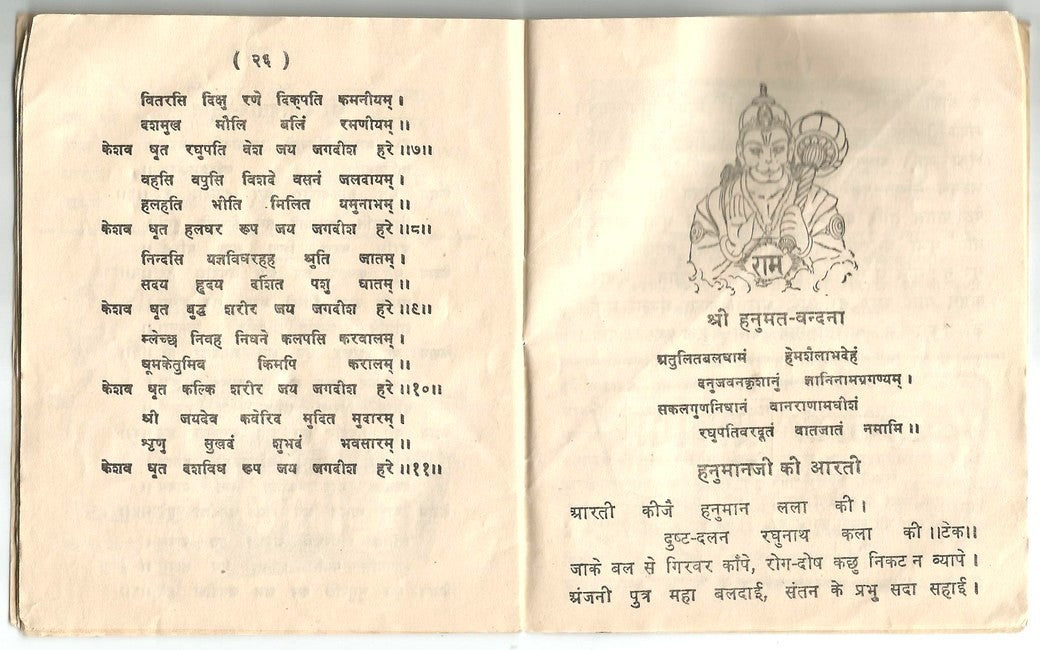 ( २६ )
वितरसि दिक्षु रणे दिक्पति कमनीयम् ।
दशमुख मौलि बलिं रमणीयम् ॥
केशव धृत रघुपति वेश जय जगदीश हरे ॥७॥
वहसि वपुसि विशदे वसनं जलदायम् ।
हलहति भीति मिलित यमुनाभम् ॥
केशव धृत हलधर रूप जय जगदीश हरे ॥८॥
निन्दसि यज्ञविधरहह श्रुति जातम् ।
सदय हृदय दर्शित पशु घातम् ॥
केशव धृत बुद्ध शरीर जय जगदीश हरे ॥९॥
म्लेच्छ निवह निधने कलपसि करवालम् ।
धूमकेतुमिव किमपि करालम् ॥
केशव धृत कल्कि शरीर जय जगदीश हरे ॥१०॥
श्री जयदेव कवेरिद मुदित मुदारम् ।
श्रृणु सुखदं शुभदं भवसारम् ॥
केशव धृत दशविध रूप जय जगदीश हरे ॥११॥
राम
श्री हनुमत-वन्दना
अतुलितबलधामं हेमशैलाभदेहं
दनुजवनकृशानुं ज्ञानिनामग्रगण्यम् ।
सकलगुणनिधानं वानराणामधीशं
रघुपतिवरदूतं वातजातं नमामि ॥
हनुमानजी की आरती
आरती कीजै हनुमान लला की ।
दुष्ट-दलन रघुनाथ कला की ॥टेक॥
जाके बल से गिरवर काँपे, रोग-दोष कछु निकट न व्यापे ।
अंजनी पुत्र महा बलदाई, संतन के प्रभु सदा सहाई ।